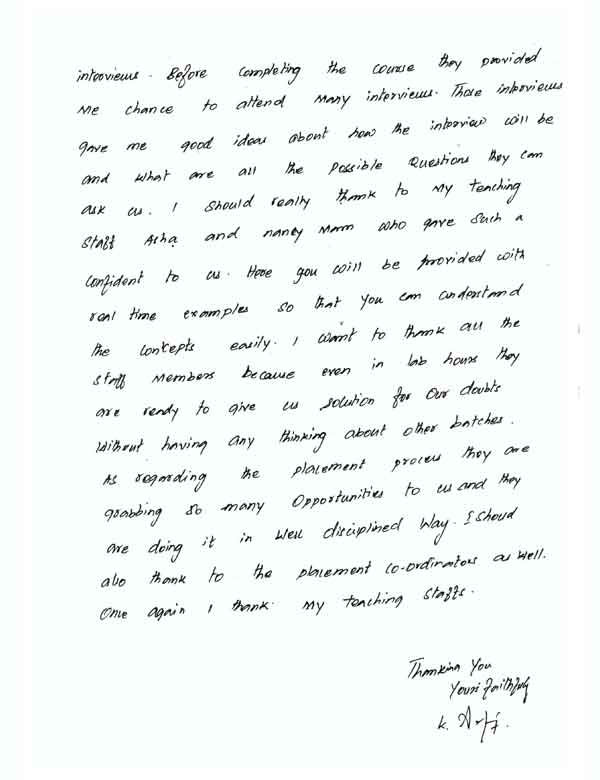 interviews. Before completing the course they provided
me chance to attend many interviews. Those interviews
gave me good ideas about how the interview will be
and what are all the possible Questions they can
ask us. I should really thank to my teaching
staff Asha and nancy Mam who gave such a
confident to us. Here you will be provided with
real time examples so that you can understand
the concepts easily. I want to thank all the
staff members because even in lab hours they
are ready to give us solution for our doubts
without having any thinking about other batches.
As regarding the placement process they are
grabbing so many opportunities to us and they
are doing it in well disciplined way. I shoud
also thank to the placement co-ordinators as well.
Once again I thank my teaching staffs.
Thanking You
Yours faithfuly
K.